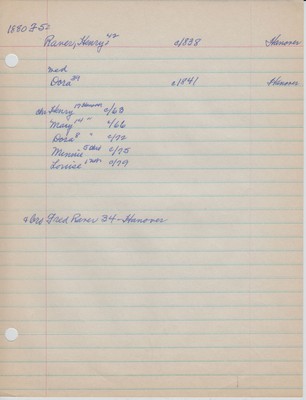 1880 F-52
Raver, Henry 42 c/1838 Hanover
md
Dora 39 c1841 Hanover
chs Henry 17 Hanover c/63
Mary 14 " c/66
Dora 8 " c/72
Minnie 5 c/75
Louise c/79
& bro Fred Raver 34 - Hanover